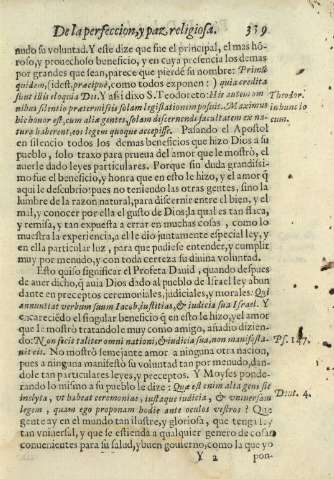 De la perfeccion, y paz, religiosa. 339
nudo su voluntad. Y este dize que fue el principal, el mas hõ-
roso, y prouechoso beneficio, y en cuya presencia los demas
por grandes que sean, parece que pierdẽ su nombre: Primũ
quidem, (idest, præcipuè, como todos exponen:) quia credita
sunt illis eloquia Dei. Y assi dixo S. Teodoreto: Hic autem om
nibus silentio prætermissis solam legislationem posuit. Maximus
hic honor est, cum aliæ gentes, solam discernendi facultatem ex na-
tura haberent, eos legem quoque accepisse. Passando el Apostol
Theodor.
in hunc lo
cum.
en silencio todos los demas beneficios que hizo Dios a su
pueblo, solo traxo para prueua del amor que le mostrò, el
auerle dado leyes particulares. Porque siẽ duda grandissi-
mo fue el beneficio, y honra que en esto le hizo, y el amor q̃
aqui le descubrio: pues no teniendo las otras gentes, sino la
lumbre de la razon natural, para discernir entre el bien, y el
mal, y conocer por ella el gusto de Dios; la qual es tan flaca,
y remisa, y tan expuesta a errar en muchas cosas, como lo
muestra la experiencia, a el le dio juntamente especial ley, y
en ella particular luz, para que pudiese entender, y cumplir
muy por menudo, y con toda certeza su diuina voluntad.
Esto quiso significar el Profeta Dauid, quando despues
de auer dicho, q̃ auia Dios dado al pueblo de Israel ley abun
dante en preceptos ceremoniales, judiciales, y morales: Qui
annuntiat verbum suum Iacob, iustitias, & iudicia sua Israel. Y
encareciẽdo el singular beneficio q̃ en esto le hizo, y el amor
que le mostrò tratandole muy como amigo, añadio dizien-
do: Non fecit taliter omni nationi, & iudicia sua, non manifesta-
uit eis. No mostrò semejante amor a ninguna otra nacion,
Ps. 147.
pues a ninguna manifestò su voluntad tan por menudo, dan-
dole tan particulares leyes, y preceptos. Y Moyses ponde-
rando lo mismo a su pueblo le dize: Quæ est enim alia gens sic
inclyta, vt habeat ceremonias, iustaque iudicia, & vniuersam
legem, quam ego proponam hodie ante oculos vestros? Que
Deut. 4.
gente ay en el mundo tan ilustre, y gloriosa, que tenga ley
tan vniuersal, y que se estienda a qualquier genero de cosas
conuenientes para su salud, y buen gouierno, como la que yo
Y 2 pon-